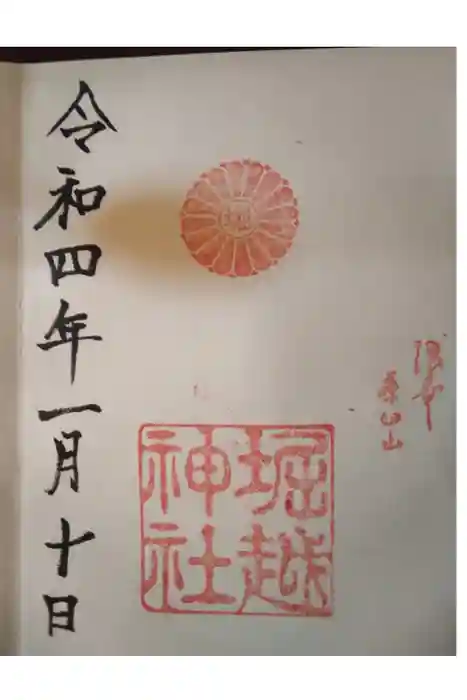 堀越
神社
令和四年一月十日